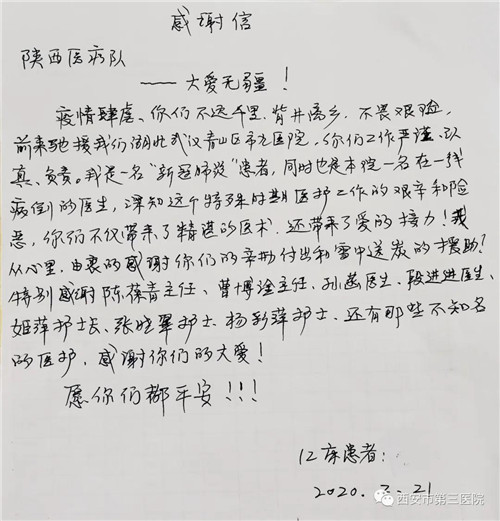 感谢信
陕西医疗队
——大爱无疆！
疫情肆虐、你们不远千里.背井离乡.不畏艰险,
前来驰援我们湖北武汉青山区市九医院,你们工作严谨、认
真、负责。我是一名“新冠肺炎”患者,同时也是本院一名在一线
病倒的医生,深知这个特殊时期医护工作的艰辛和险
恶,你们不仅带来了精湛的医术.还带来了爱的接力!我
从心里.由衷的感谢你们的辛勤付出和雪中送炭的援助?
特别感谢陈葆青主任、曹博淦主任、孙函医生、段进进医生、
姬萍护士长、张晓翠护士.杨彩萍护士.还有那些不知名
的医护.感谢你们的大爱!
愿你们都平安!!!
12床患者:
2020.2.21
西安市第三医院